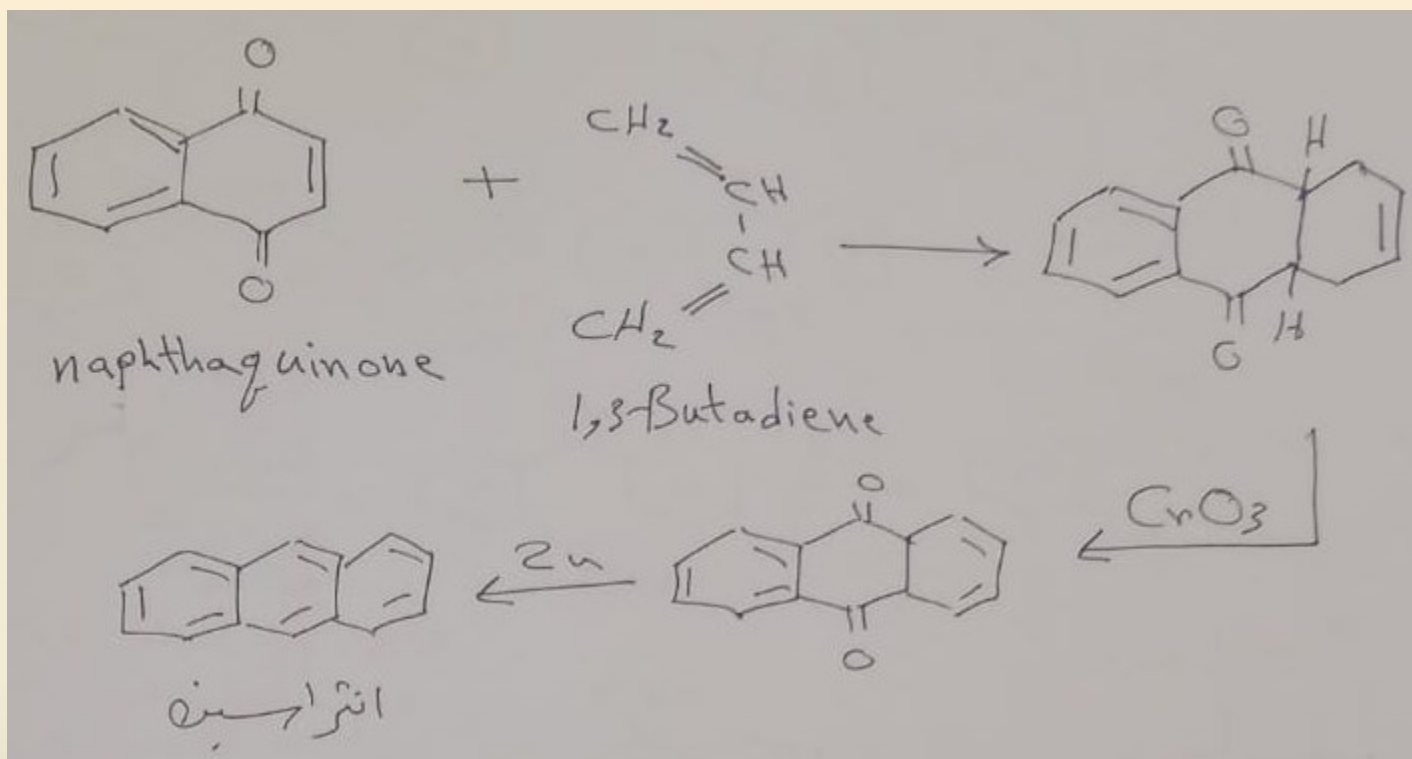 O
O
naphthaquinone
+
CH2
CH
CH
CH2
1,3-Butadiene
O H
O H
CrO3
O
O
Zn
انثراسين